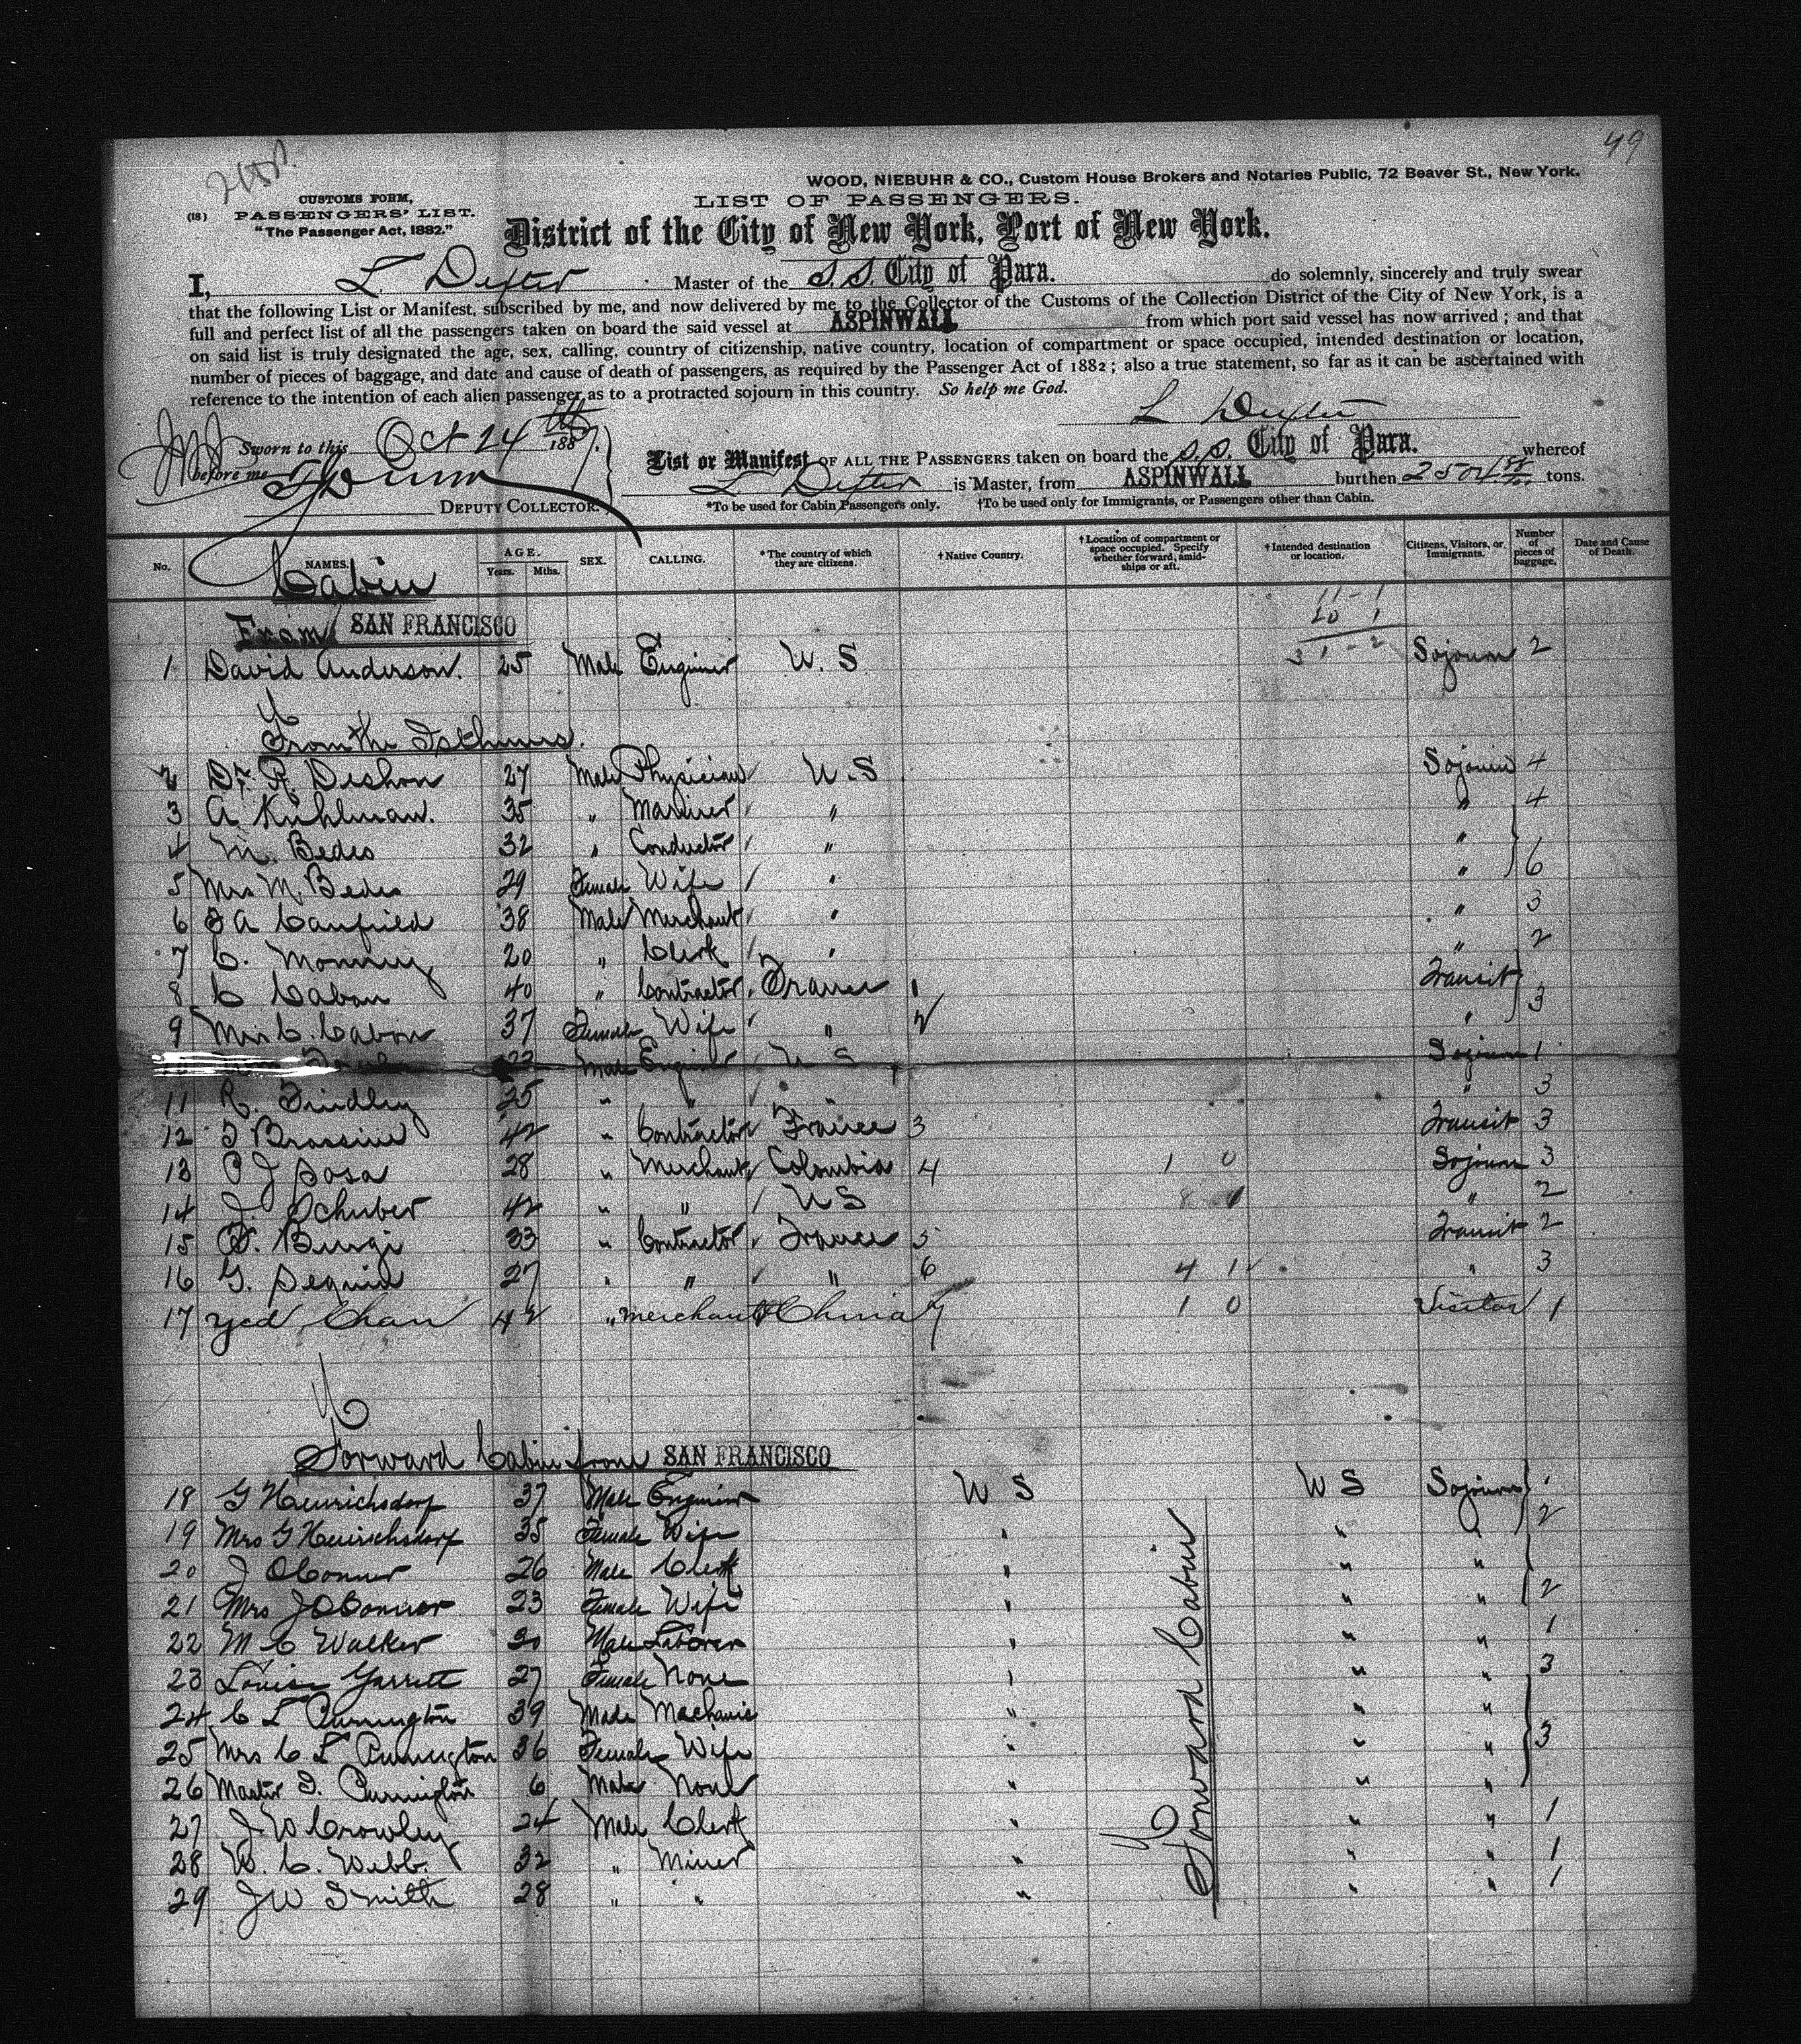 49
WOOD, NIEBUHR & CO., Custom House Brokers and Notaries Public, 72 Beaver St., New York.
CUSTOMS FORM,
(18) PASSENGERS' LIST.
"The Passenger Act, 1882."
LIST OF PASSENGERS.
District of the City of New York, Port of New York.
I, L. Dexter Master of the S.S. City of Para. do solemnly, sincerely and truly swear
that the following List or Manifest, subscribed by me, and now delivered by me to the Collector of the Customs of the Collection District of the City of New York, is a
full and perfect list of all the passengers taken on board the said vessel at ASPINWALL from which port said vessel has now arrived; and that
on said list is truly designated the age, sex, calling, country of citizenship, native country, location of compartment or space occupied, intended destination or location,
number of pieces of baggage, and date and cause of death of passengers, as required by the Passenger Act of 1882; also a true statement, so far as it can be ascertained with
reference to the intention of each alien passenger as to a protracted sojourn in this country. So help me God.
L Dexter
Sworn to this Oct 24th 1887.
before me
DEPUTY COLLECTOR.
List or Manifest OF ALL THE PASSENGERS taken on board the S.S. City of Para. whereof
L Dexter is Master, from ASPINWALL burthen 2504 tons.
*To be used for Cabin Passengers only. †To be used only for Immigrants, or Passengers other than Cabin.
No. NAMES. AGE. Years. Mths. SEX. CALLING. *The country of which they are citizens. †Native Country. †Location of compartment or space occupied. Specify whether forward, amidships or aft. †Intended destination or location. Citizens, Visitors, or Immigrants. Number of pieces of baggage. Date and Cause of Death.
Cabin
11 - 1
20 1
31 - 2
From SAN FRANCISCO
1 David Anderson. 25 Male Engineer U. S Sojourn 2
From the Isthmus.
2 Dr. R. Deshon 27 Male Physician U. S Sojourn 4
3 A. Kuhlman. 35 " Mariner " " 4
4 M. Bedes 32 " Conductor " "
5 Mrs M. Bedes 29 Female Wife " " 6
6 J A Canfield 38 Male Merchant " " 3
7 C. 20 " Clerk " " 2
8 C Cabon 40 " Contractor France 1 Transit
9 Mrs C. Cabon 37 Female Wife " 2 " 3
Male Engineer U S Sojourn 1
11 R. Findley 25 " " " " 3
12 42 " Contractor France 3 Transit 3
13 P J Sosa 28 " Merchant Colombia 4 1 0 Sojourn 3
14 J Schuber 42 " " U S " 2
15 F. Burgi 33 " Contractor France 5 Transit 2
16 G. Sequin 27 " " " 6 4 1 " 3
17 Yed Chan 42 " merchant China 7 1 0 Visitor 1
Forward Cabin from SAN FRANCISCO
18 G Heinrichsdorf 37 Male Engineer U S U S Sojourn
19 Mrs G Heinrichsdorf 35 Female Wife " " " 2
20 J OConnor 26 Male Clerk " " "
21 Mrs J OConnor 23 Female Wife " " " 2
22 M C Walker 30 Male Laborer " " " 1
23 Louise Garrett 27 Female None " " " 3
24 C L Purrington 39 Male Machanic " " "
25 Mrs C L Purrington 36 Female Wife " " " 3
26 Master Purrington 6 Male None " " "
27 J. W Crowley 24 Male Clerk " " " 1
28 W. C. Webb. 32 " Miner " " " 1
29 J W Smith 28 " " " " " 1
Forward Cabin